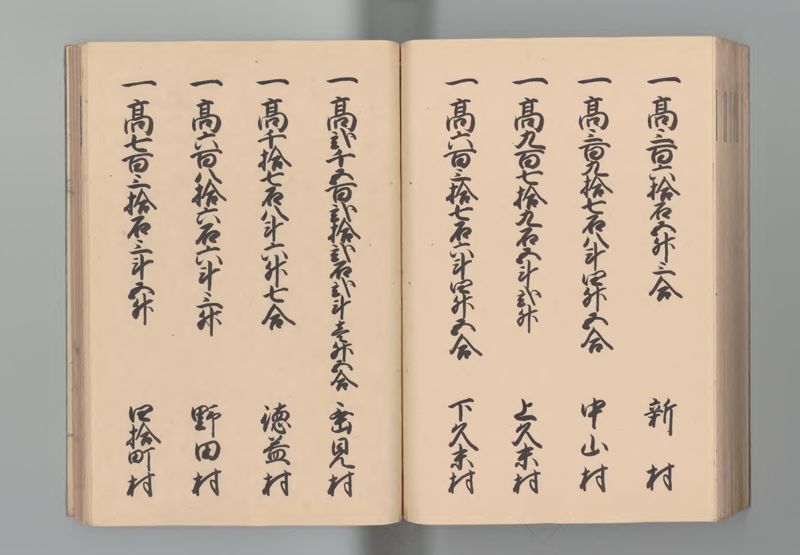 一高三百六拾石五升三合 新村
一高三百九拾七石八斗四升五合 中山村
一高九百七拾九石五斗弐升 上久末村
一高六百三拾七石六斗四升五合 下久末村
一高弐千五百弐拾弐石弐斗壱升五合 重見村
一高千拾七石八斗六升七合 徳益村
一高六百八拾六石六斗三升 野田村
一高七百三拾石三斗五升 四拾町村